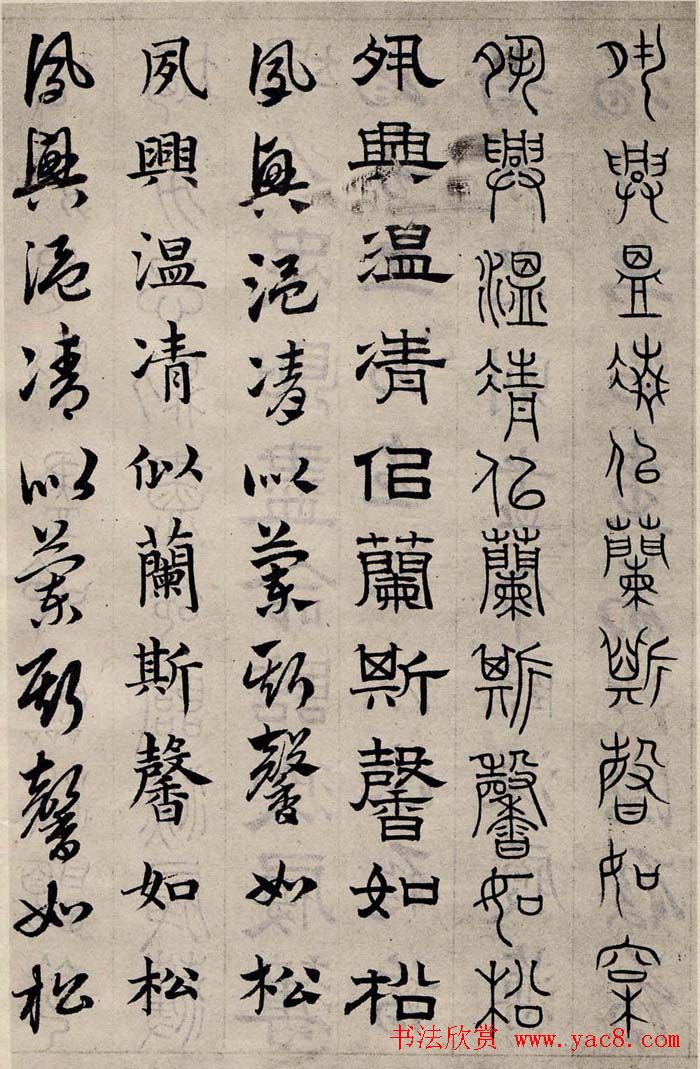 夙興溫凊似蘭斯馨如松
夙興溫凊似蘭斯馨如松
夙興温凊佀蘭斯馨如松
夙興温凊以蘭斯馨如松
夙興温凊似蘭斯馨如松
夙興温凊以蘭斯馨如松
书法欣赏 www.yac8.com